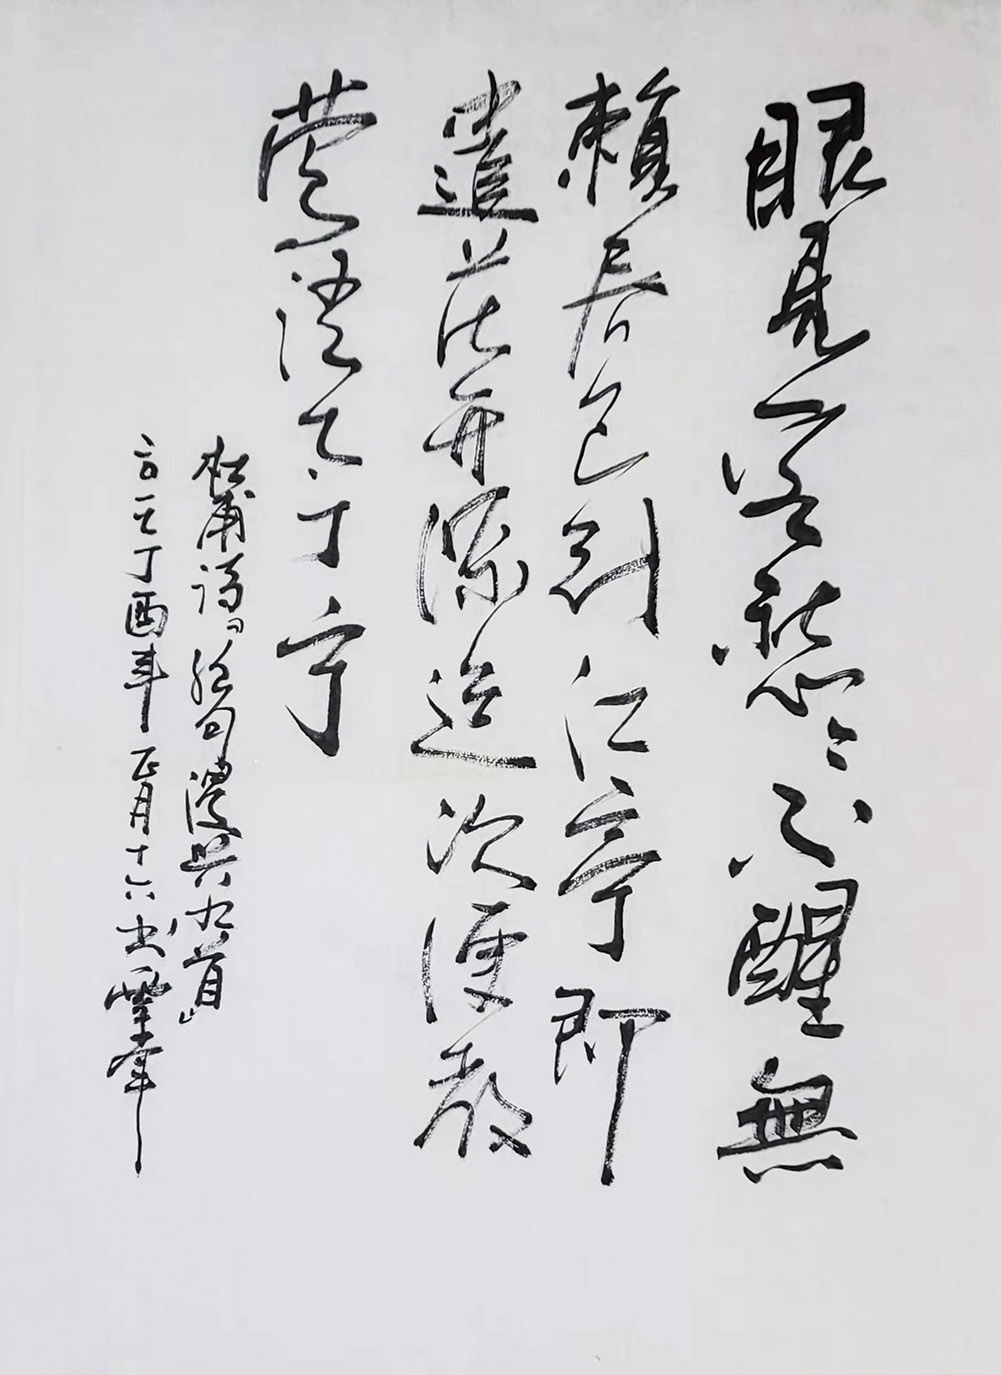 眼見客愁々不醒無
賴春色到江亭即
遣花开深造次便教
莺语太丁宁
杜甫诗「绝句漫兴九首」
二〇一七丁酉年正月十六书